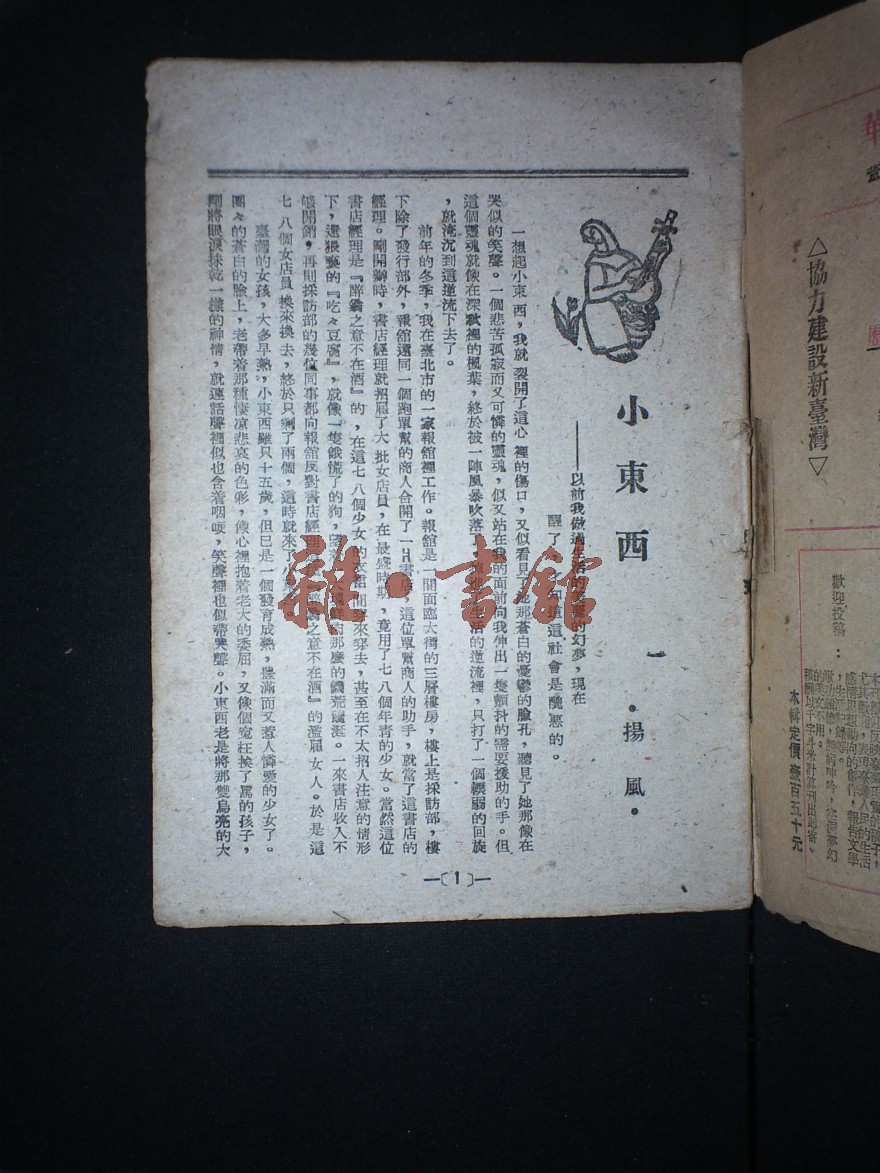 小東西
·揚風·
——以前我做過生活的美麗的幻夢，現在
醒了，才知道這社會是醜惡的。
一
一想起小東西，我就裂開了這心裡的傷口，又似看見了她那蒼白的憂鬱的臉孔，聽見了她那像在
哭似的笑聲。一個悲苦孤寂而又可憐的靈魂，似又站在我的面前向我伸出一隻顫抖的需要援助的手。但
這個靈魂就像在深秋裡的楓葉，終於被一陣風暴吹落了，生活的逆流裡，只打了一個輕弱的回旋
，就淹沉到這逆流下去了。
前年的冬季，我在臺北市的一家報舘裡工作。報舘是一間面臨大街的三層樓房，樓上是採訪部，樓
下除了發行部外，報舘還同一個跑單幫的商人合開了一書店，這位單幫商人的助手，就當了這書店的
經理。剛開辦時，書店經理就招雇了大批女店員，在最盛時期，竟用了七八個年青的少女。當然這位
書店經理是『醉翁之意不在酒』的，在這七八個少女的衣裙間穿來穿去，甚至在不太招人注意的情形
下，還猥褻的『吃々豆腐』，就像一隻餓慌了的狗，的那麼的饑荒流涎。一來書店收入不
够開銷，再則採訪部的幾位同事都向報舘反對書店經理『醉翁之意不在酒』的濫雇女人。於是這
七八個女店員換來換去，終於只剩了兩個，這時就來了小東西。
臺灣的女孩，大多早熟，小東西雖只十五歲，但已是一個發育成熟，豐滿而又惹人憐愛的少女了。
圓々的蒼白的臉上，老帶着那種悽凉悲哀的色彩，像心裡抱着老大的委屈，又像個寃枉挨了罵的孩子，
剛將眼淚抹乾一樣的神情，就連話聲裡似也含着咽哽，笑聲裡也似帶哭聲。小東西老是將那雙烏亮的大
—〔1〕—
雜·書舘
△協力建設新臺灣▽
歡迎投稿：
本輯定價壹百五十元